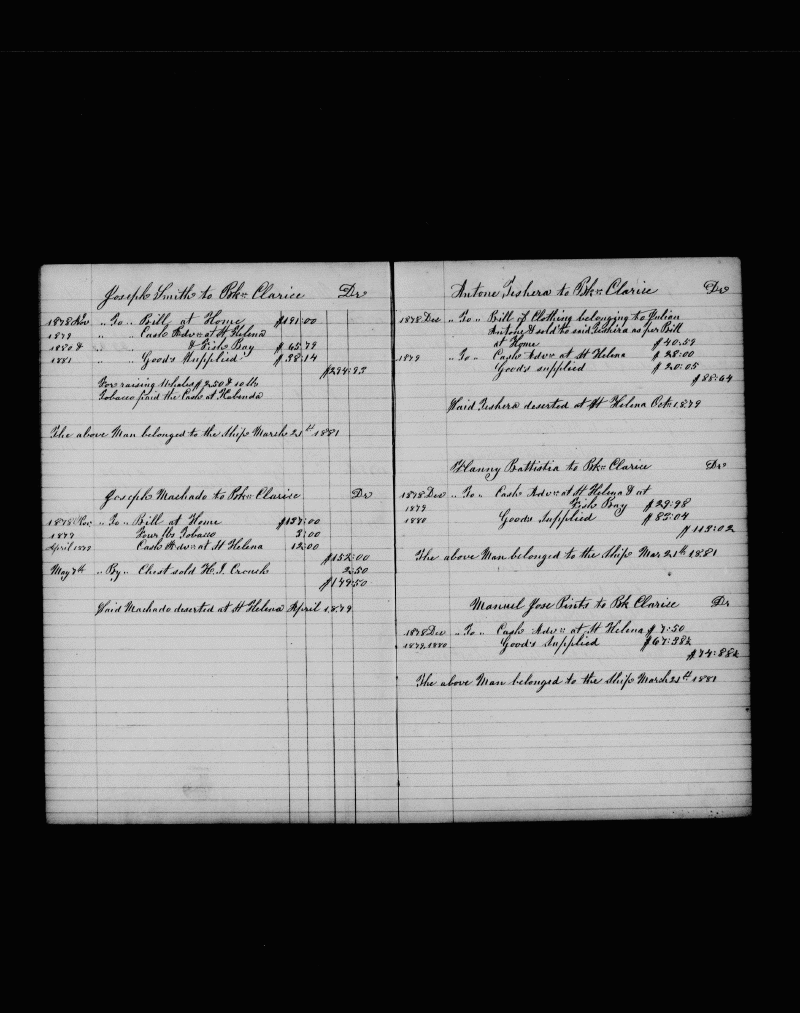 Joseph Smith to Bkn Clarice Dr
1878 Nov " To " Bill at Home $191:00
1879 " " Cash Advn: at St Helena
1880 & " " & Fish Bay $65:79
1881 " " Goods Supplied $38:14
$294:93
For raising Whales $2.50 & 10 lb
Tobacco paid the Cash at Kabenda
The above Man belonged to the Ship March 21st 1881
Joseph Machado to Bkn Clarice Dr
1878 " To " Bill at Home $137:00
1879 Four lbs Tobacco 3:00
April 1879 Cash Advn: at St Helena 12:00
$152:00
May 7th " By " Chest sold H. I. Crouch 2:50
$149:50
Said Machado deserted at St Helena April 1879
Antone Teshera to Bkn Clarice Dr
1878 Dec " To " Bill of Clothing belonging to Julian
Antone & sold to said Teshira as per Bill
at Home $40:59
1879 " To " Cash Advn: at St Helena $28:00
Goods supplied $20:05
$88:64
Said Teshera deserted at St Helena Oct 1879
Manny Battistia to Bkn Clarice Dr
1878 Dec " To " Cash Advn: at St Helena & at
1879 Fish Bay $29:98
1880 Goods Supplied $83:04
$113:02
The above Man belonged to the Ship Mar 21st 1881
Manuel Jose Pints to Bk Clarice Dr
1878 Dec " To " Cash Advn: at St Helena $7:50
1879,1880 Goods Supplied $67:38½
$74:88½
The above Man belonged to the Ship March 21st 1881